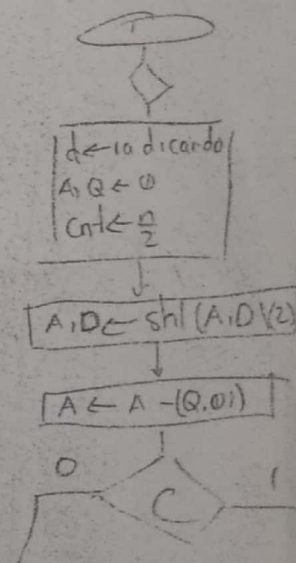 d←radicando
A, Q ← 0
Cnt← n/2
A, D ← shl (A, D \\2)
A ← A -(Q, 01)
0
C
1